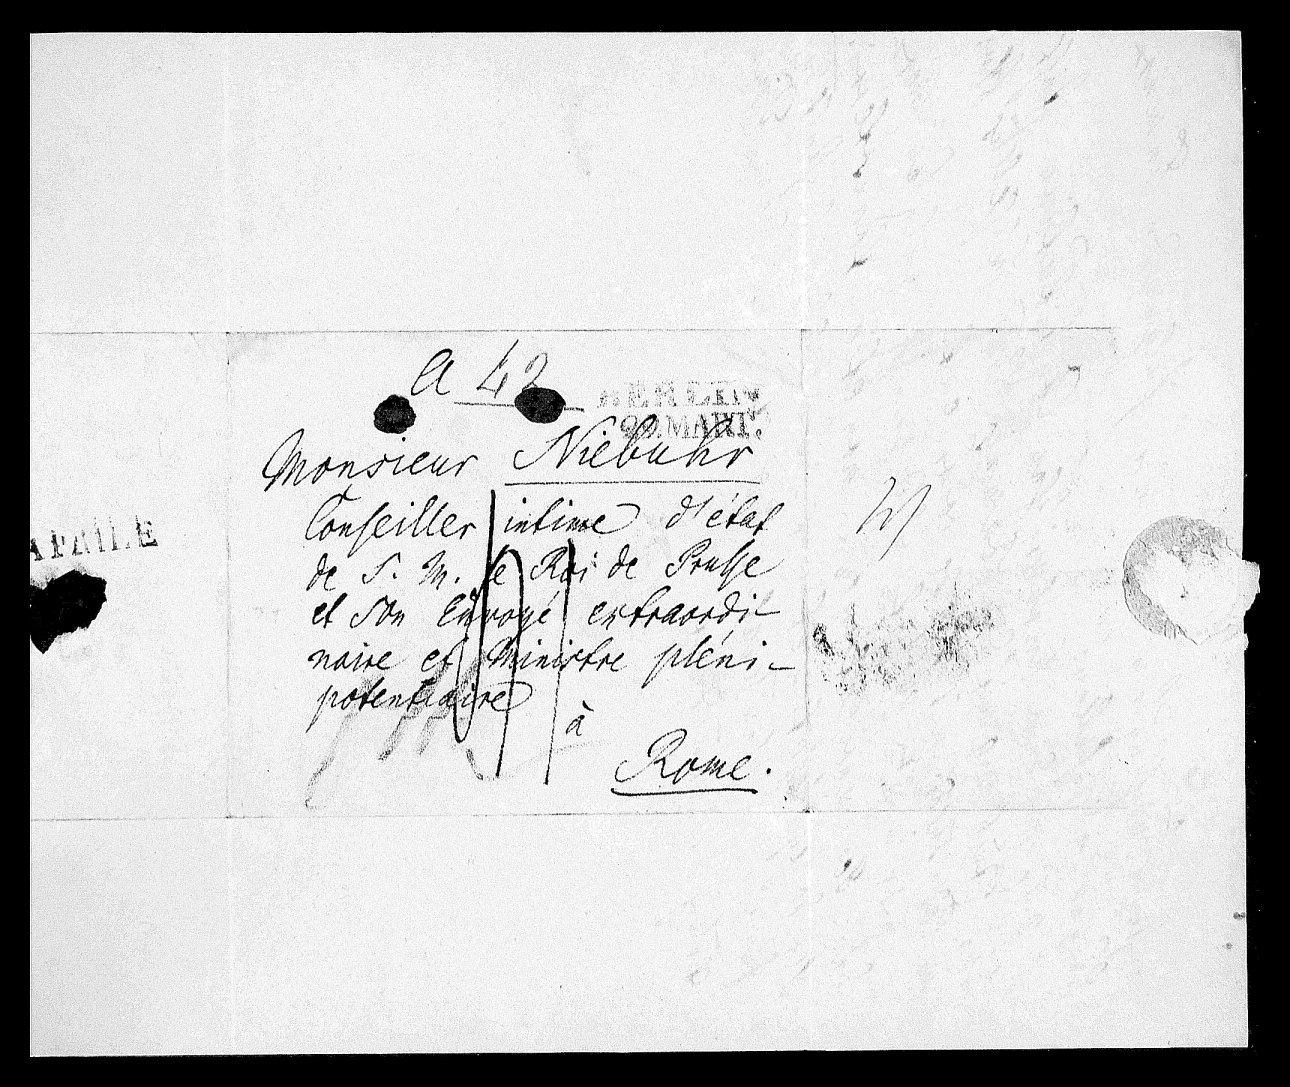 a 42
BERLIN
MART.
Monsieur Niebuhr
Conseiller intime d'état
de S. M. le Roi de Prusse
et son Envoyé extraordi-
naire et Ministre pléni-
potentiaire
à
Rome.